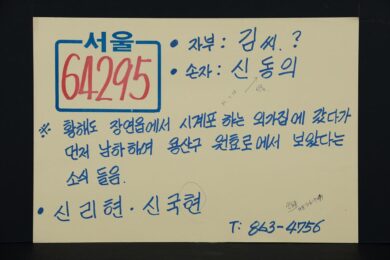 서울
64295
• 자부: 김씨. ?
• 손자: 신동의
※ 황해도 장연읍에서 시계포 하는 외가집에 갔다가
먼저 남하하여 용산구 원효로에서 보았다는
소식 들음.
• 신리현 · 신국현
T: 863-4756